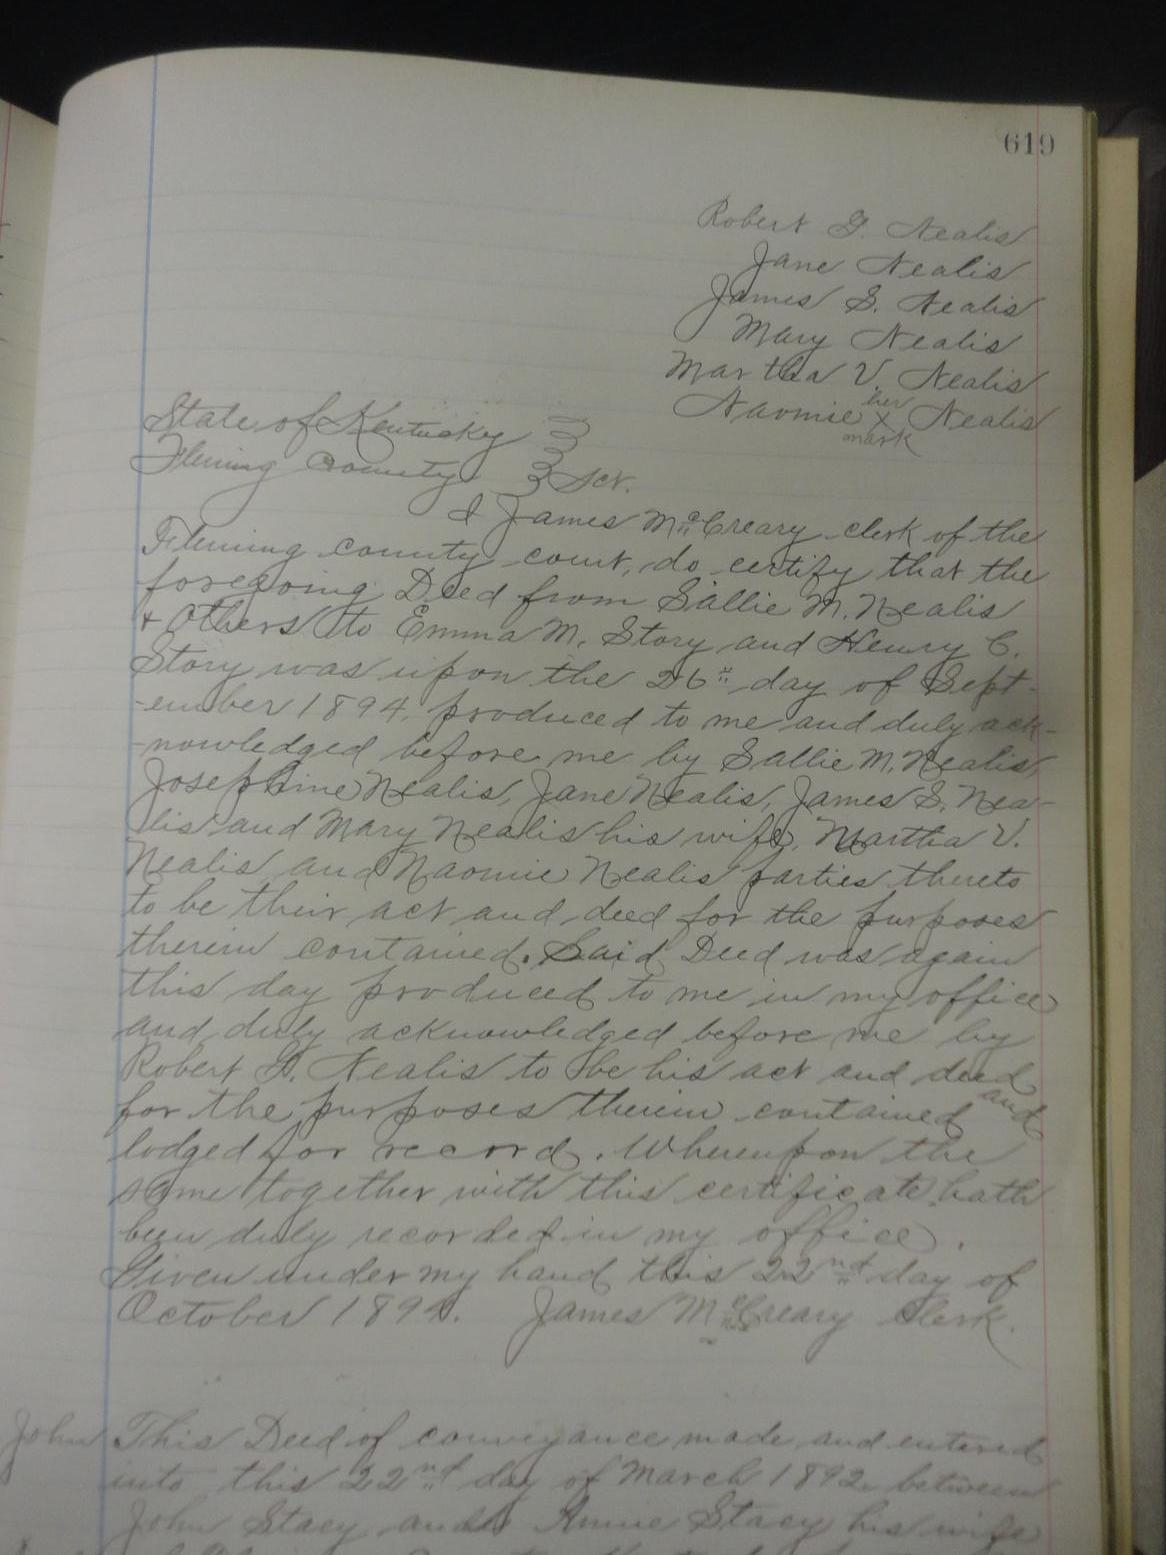 619
Robert G. Nealis
Jane Nealis
James S. Nealis
Mary Nealis
Martha V. Nealis
her
Naomie X Nealis
mark
State of Kentucky
Fleming County Sct.
I James McCreary clerk of the
Fleming county court, do certify that the
foregoing Deed from Sallie M. Nealis
+ Others to Emma M. Story and Henry C.
Story was upon the 26" day of Sept-
-ember 1894, produced to me and duly ack-
-nowledged before me by Sallie M. Nealis,
Josephine Nealis, Jane Nealis, James S. Nea-
lis and Mary Nealis his wife, Martha V.
Nealis and Naomie Nealis parties thereto
to be their act and deed for the purposes
therein contained. Said Deed was again
this day produced to me in my office
and duly acknowledged before me by
Robert G. Nealis to be his act and deed
for the purposes therein contained and
lodged for record. Whereupon the
same together with this certificate hath
been duly recorded in my office.
Given under my hand this 22nd day of
October 1894. James McCreary Clerk.
John This Deed of conveyance made and entered
into this 22nd day of March 1892 between
John Stacy and Annie Stacy his wife